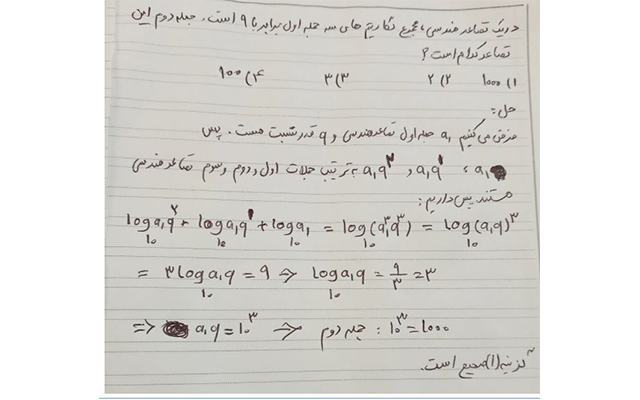 در یک تصاعد هندسی، مجموع لگاریتم های سه جمله اول برابر با ۹ است. جمله دوم این
تصاعد کدام است؟
۱) ۱۰۰۰ ۲) ۲ ۳) ۳ ۴) ۱۰۰
حل:
فرض می کنیم a₁ جمله اول تصاعد هندسی و q قدر نسبت هست. پس
a₁، a₁q¹ و a₁q² به ترتیب جملات اول و دوم و سوم تصاعد هندسی
هستند پس داریم:
log₁₀a₁q² + log₁₀a₁q¹ + log₁₀a₁ = log₁₀(a₁³q³) = log₁₀(a₁q)³
= ۳log₁₀a₁q = ۹ ⇒ log₁₀a₁q = ۹/۳ = ۳
⇒ a₁q = ۱۰³ ⇒ جمله دوم : ۱۰³ = ۱۰۰۰
گزینه (۱) صحیح است.